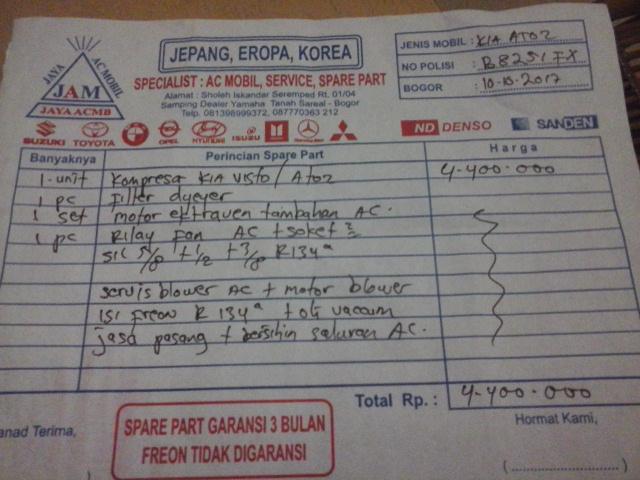 JAYA AC MOBIL
JAM
JAYA ACMB
JEPANG, EROPA, KOREA
SPECIALIST : AC MOBIL, SERVICE, SPARE PART
Alamat : Sholeh Iskandar Seremped Rt. 01/04
Samping Dealer Yamaha Tanah Sareal - Bogor
Telp. 081398999372, 087770363 212
JENIS MOBIL : KIA ATOZ
NO POLISI : B 8251 FX
BOGOR : 10-10-2017
SUZUKI TOYOTA OPEL HYUNDAI ISUZU
ND DENSO SANDEN
Banyaknya Perincian Spare Part Harga
1-unit Kompresa KIA VISTO / Atoz 4-400.000
1 pc Filter dyeyer
1 set motor ektraven tambahan AC.
1 pc Rilay Fan AC + soket
sil 5/8 + 1/2 + 3/8 R134a
servis blower AC + motor blower
isi freon R 134a + oli vacum
jasa pasang + bersihin saluran AC.
Total Rp. : 4-400.000
anad Terima, Hormat Kami,
SPARE PART GARANSI 3 BULAN
FREON TIDAK DIGARANSI